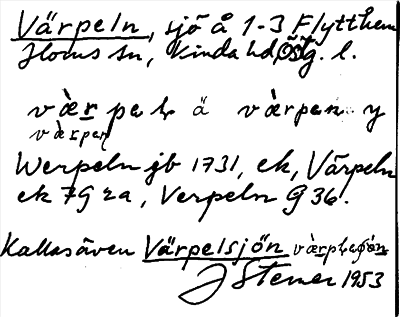 Värpeln, sjö å 1-3 Flytthem
Horns sn, Kinda hd, Östg. l.
vàrpeln ä vàrpen y
vàrpen
Werpeln jb 1731, ek, Värpeln
ek 7G 2a, Verpeln G 36.
Kallas även Värpelsjön
J Stemer 1953